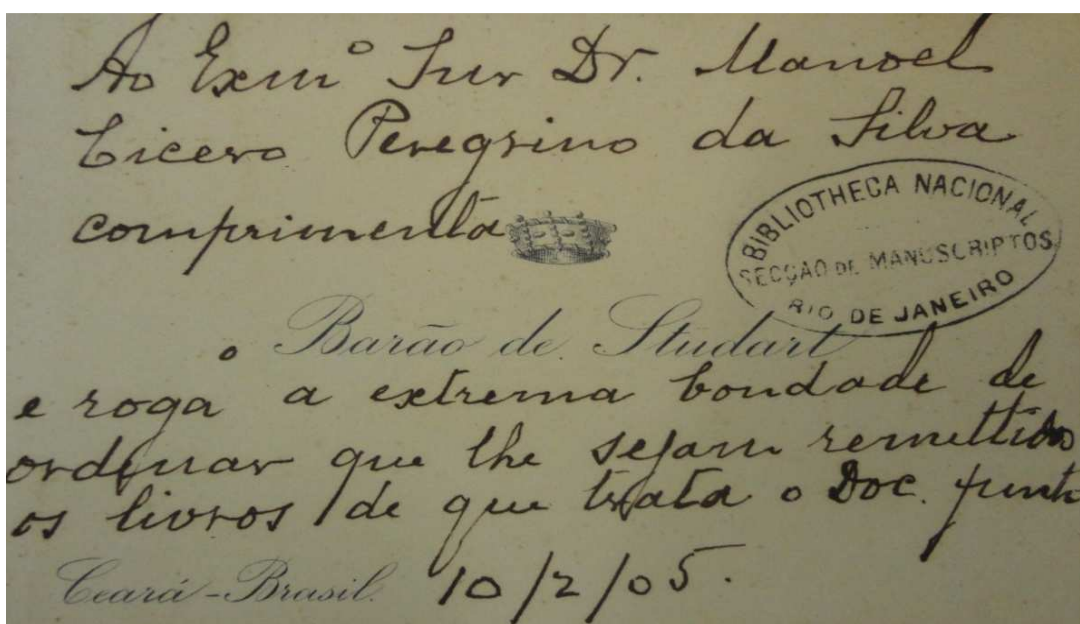 Ao Exmº Snr Dr. Manoel
Cicero Peregrino da Silva
comprimenta
BIBLIOTHECA NACIONAL
SECÇÃO DE MANUSCRIPTOS
RIO DE JANEIRO
o Barão de Studart
e roga a extrema bondade de
ordenar que lhe sejam remettidos
os livros de que trata o Doc. junto
Ceará-Brasil. 10/2/05.